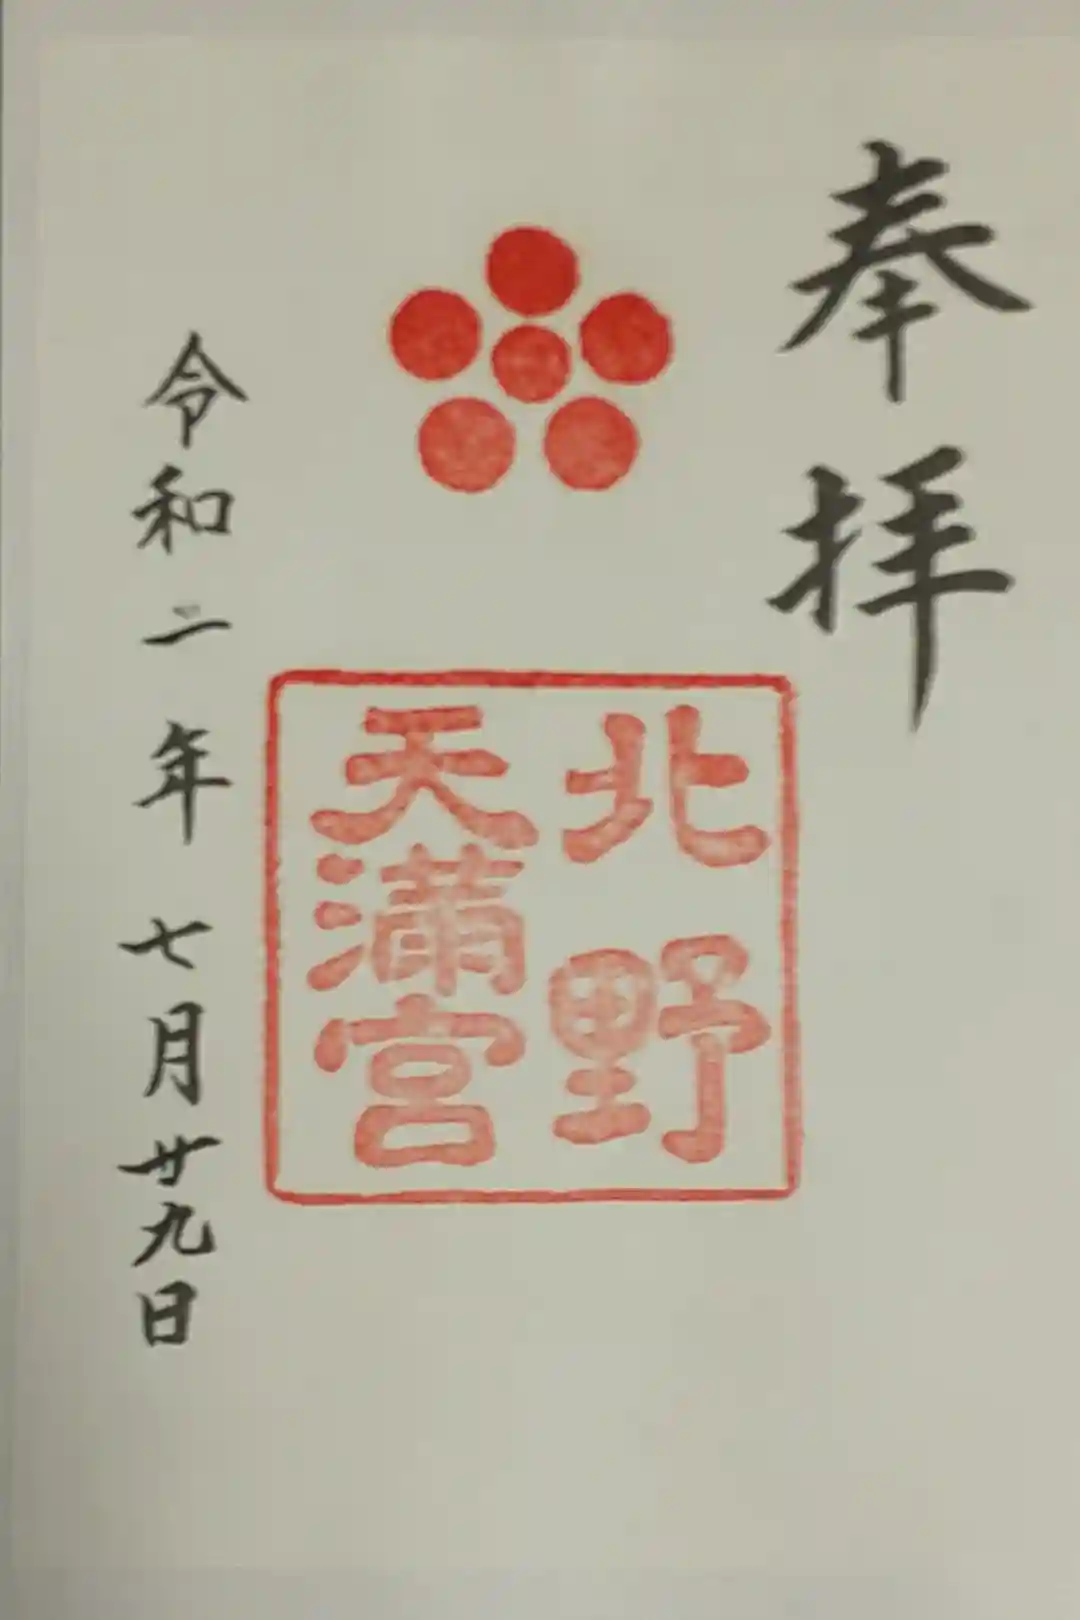 奉拝
北野
天満宮
令和二年七月廿九日